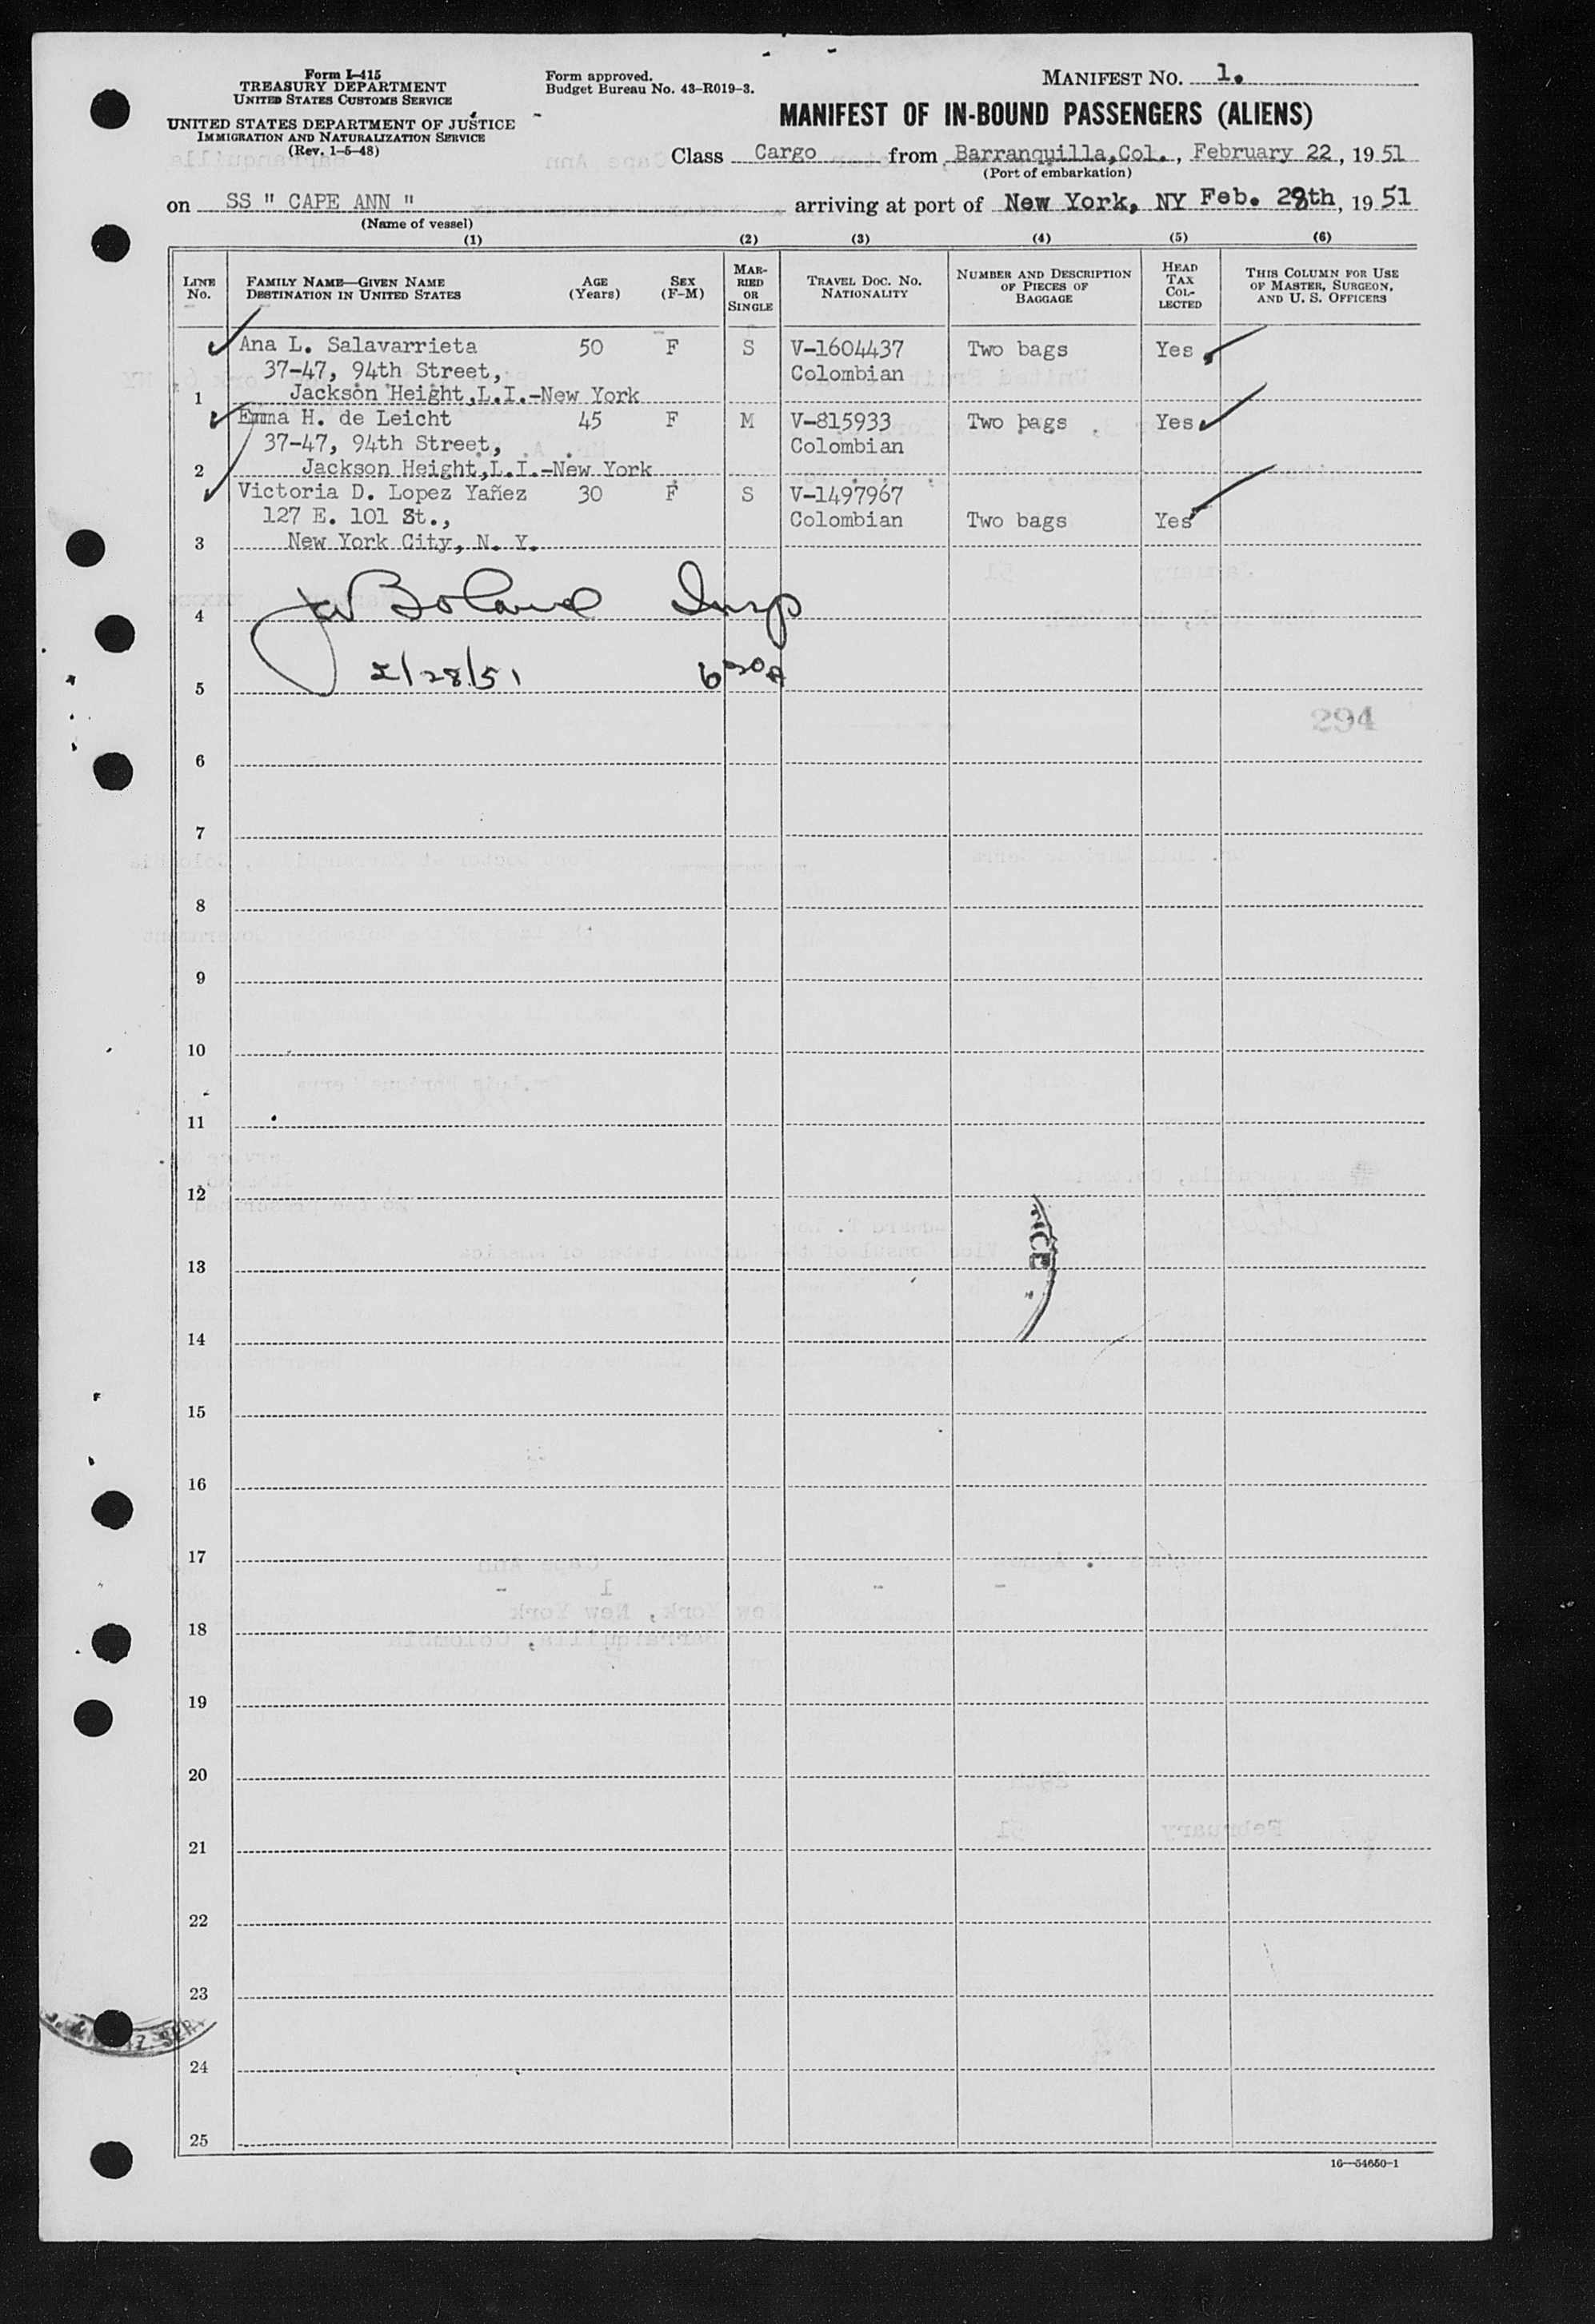 Form I-415
TREASURY DEPARTMENT
UNITED STATES CUSTOMS SERVICE
UNITED STATES DEPARTMENT OF JUSTICE
IMMIGRATION AND NATURALIZATION SERVICE
(Rev. 1-5-48)
Form approved.
Budget Bureau No. 43-R019-3.
MANIFEST NO. 1.
MANIFEST OF IN-BOUND PASSENGERS (ALIENS)
Class Cargo from Barranquilla,Col., February 22, 1951
(Port of embarkation)
on SS " CAPE ANN " arriving at port of New York, NY Feb. 28th, 1951
(Name of vessel)
(1) (2) (3) (4) (5) (6)
LINE No. FAMILY NAME—GIVEN NAME DESTINATION IN UNITED STATES AGE (Years) SEX (F-M) MARRIED OR SINGLE TRAVEL DOC. NO. NATIONALITY NUMBER AND DESCRIPTION OF PIECES OF BAGGAGE HEAD TAX COLLECTED THIS COLUMN FOR USE OF MASTER, SURGEON, AND U. S. OFFICERS
Ana L. Salavarrieta 50 F S V-1604437 Two bags Yes
37-47, 94th Street, Colombian
1 Jackson Height,L.I.-New York
Emma H. de Leicht 45 F M V-815933 Two bags Yes
37-47, 94th Street, Colombian
2 Jackson Height,L.I.-New York
Victoria D. Lopez Yañez 30 F S V-1497967
127 E. 101 St., Colombian Two bags Yes
3 New York City, N. Y.
4 JW Boland Insp
5 2/28/51 6 30 A
294
6
7
8
9
10
11
12
13
14
15
16
17
18
19
20
21
22
23
24
25
16—54650-1